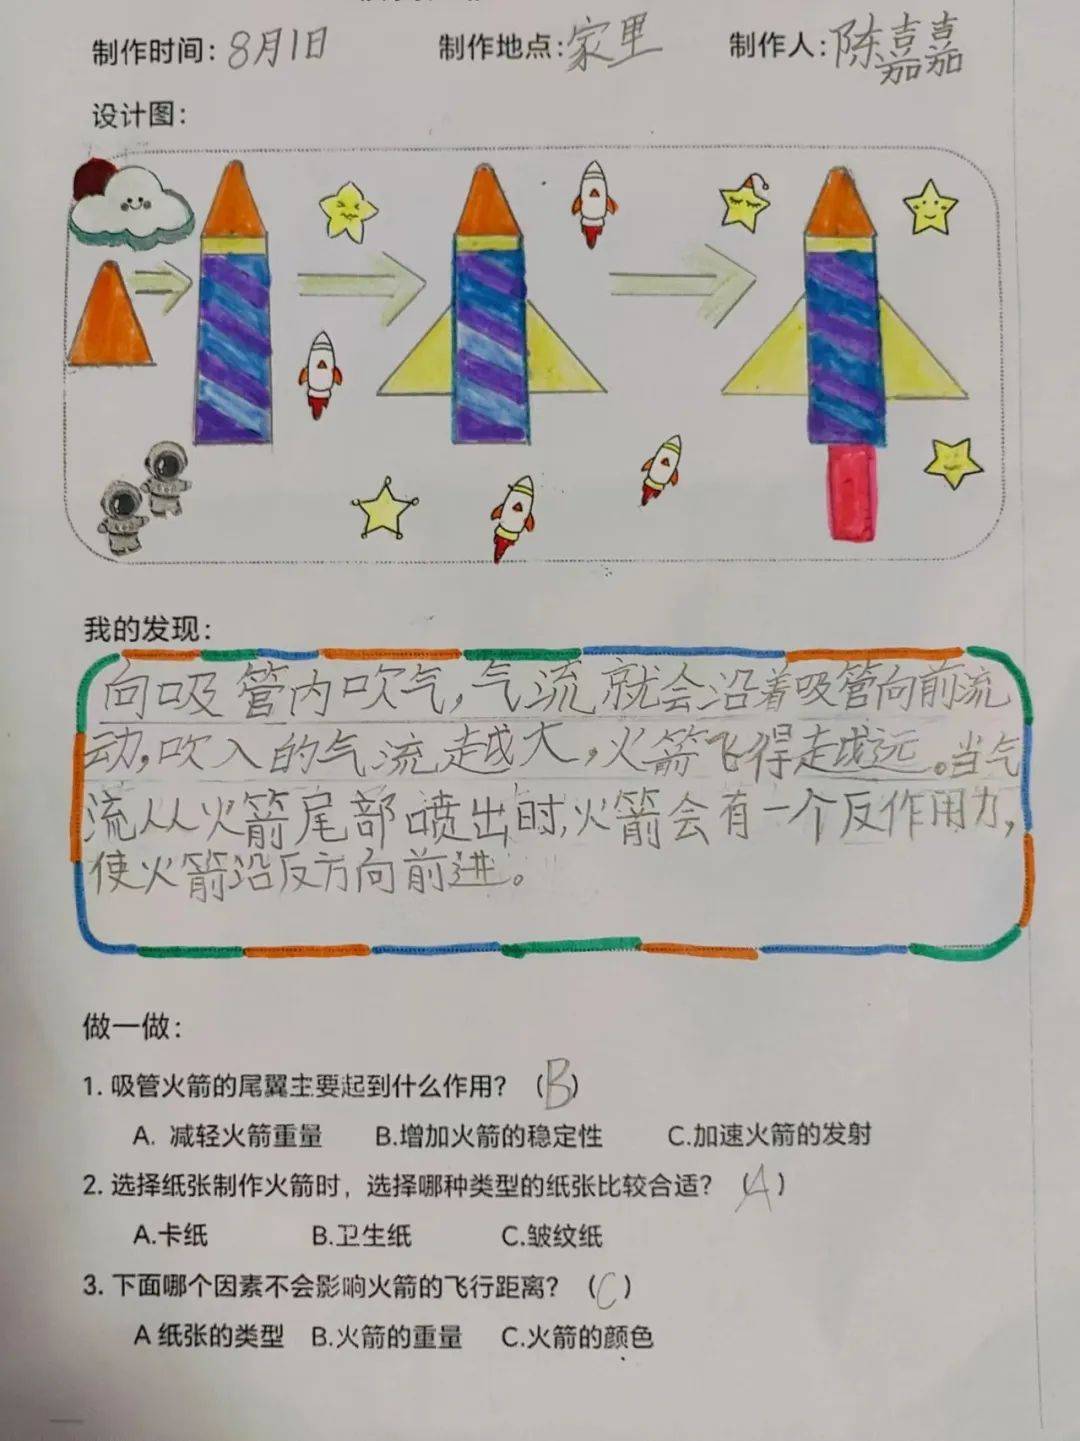 制作时间：8月1日 制作地点：家里 制作人：陈嘉嘉
设计图：
我的发现：
向吸管内吹气，气流就会沿着吸管向前流
动，吹入的气流越大，火箭飞得越远。当气
流从火箭尾部喷出时，火箭会有一个反作用力，
使火箭沿反方向前进。
做一做：
1. 吸管火箭的尾翼主要起到什么作用？（B）
A. 减轻火箭重量 B.增加火箭的稳定性 C.加速火箭的发射
2. 选择纸张制作火箭时，选择哪种类型的纸张比较合适？（A）
A.卡纸 B.卫生纸 C.皱纹纸
3. 下面哪个因素不会影响火箭的飞行距离？（C）
A 纸张的类型 B.火箭的重量 C.火箭的颜色